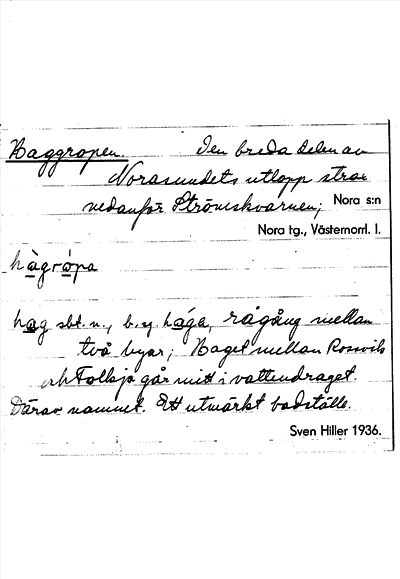 Haggropen. Den breda delen av
Norasundets utlopp strax
nedanför Strömskvarnen; Nora s:n
Nora tg., Västernorrl. l.
hàgrópa
hag sbt. n., b. sg. hága, rågång mellan
två byar; Haget mellan Rossvik
och Folkja går mitt i vattendraget.
Därav namnet. Ett utmärkt badställe.
Sven Hiller 1936.